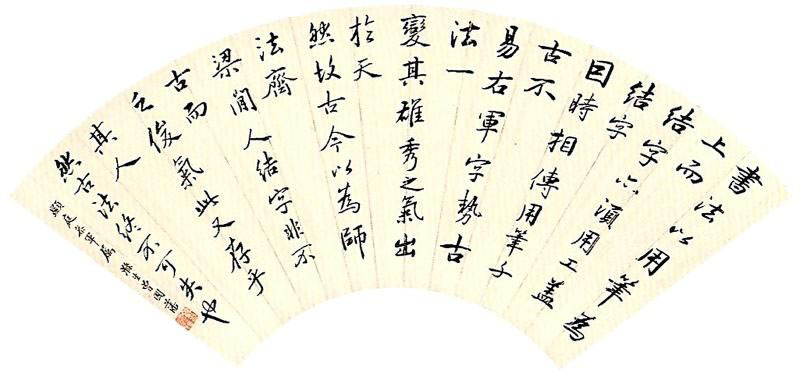 書法以用筆為
上而
結字亦須用工蓋
結字
因時相傳用筆千
古不
易右軍字勢古
法一
變其雄秀之氣出
於天
然故古今以為師
法齊
梁間人結字非不
古而
乏俊氣此又存乎
其人
然古法終不可失也
庭 屬 滌生曾國藩